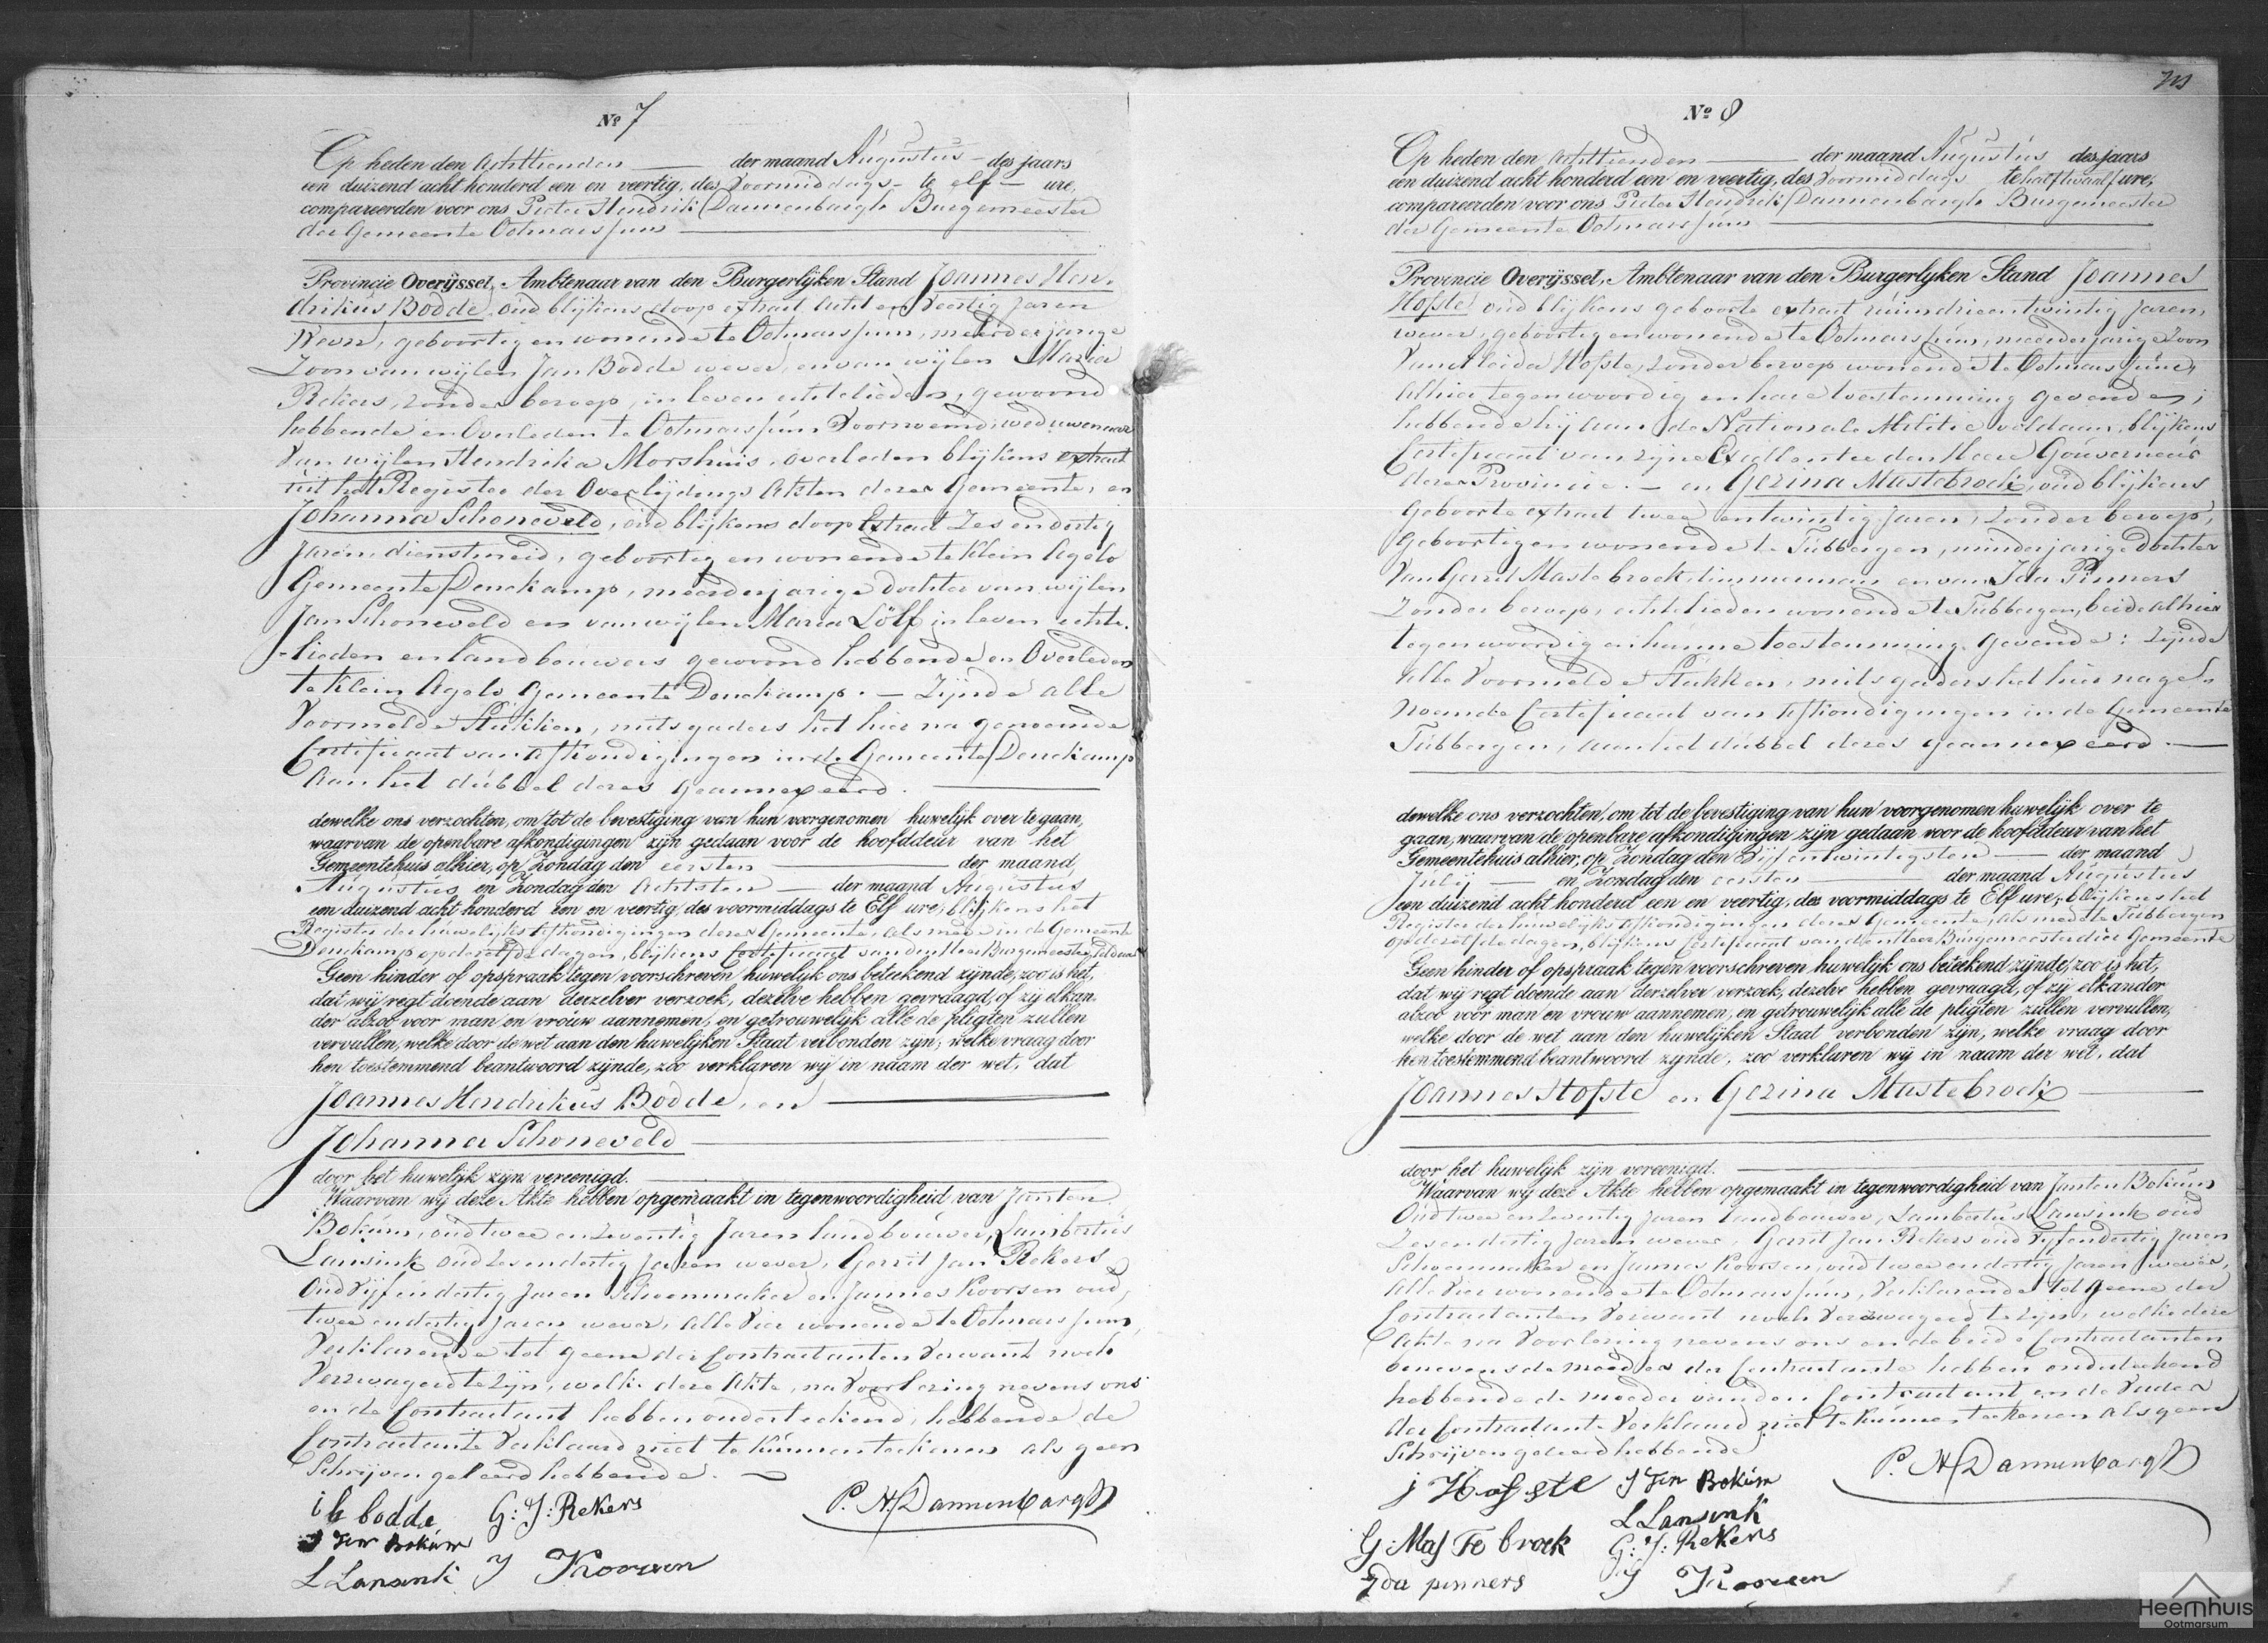 Nº 7
Op heden den Achttienden der maand Augustus des jaars
een duizend acht honderd een en veertig, des Voormiddags te elf ure,
compareerden voor ons Pieter Hendrik Dannenbargh Burgemeester
der Gemeente Ootmarssum
Provincie Overijssel, Ambtenaar van den Burgerlijken Stand Joannes Hen-
drikus Bodde, oud blijkens doop extract acht en Veertig Jaren
Wever, geboortig en wonende te Ootmarssum, meerderjarige
Zoon van wijlen Jan Bodde wever, en van wijlen Maria
Rekers, zonder beroep, in leven echtelieden, gewoond
hebbende en Overleden te Ootmarssum Voornoemd, weduwenaar
Van wijlen Hendrika Morshuis, overleden blijkens extract
uit het Register der Overlijdings Akten dezer Gemeente, en
Johanna Schoneveld, oud blijkens doop Extract Zes en dertig
Jaren, dienstmeid, geboortig en wonende te Klein Agelo
Gemeente Denekamp, meerderjarige dochter van wijlen
Jan Schoneveld en van wijlen Maria Lölf in leven echte-
-lieden en landbouwers gewoond hebbende en Overleden
te Klein Agelo Gemeente Denekamp. — Zijnde alle
Voormelde Stukken, mitsgaders het hier na genoemde
Certificaat van Afkondigingen in de Gemeente Denekamp
Aan het dubbel dezes geannexeerd.
dewelke ons verzochten, om tot de bevestiging van hun voorgenomen huwelijk over te gaan,
waarvan de openbare afkondigingen zijn gedaan voor de hoofddeur van het
Gemeentehuis alhier, op Zondag den eersten der maand
Augustus en Zondag den Achtsten der maand Augustus
een duizend acht honderd een en veertig, des voormiddags te Elf ure, blijkens het
Register der huwelijks Afkondigingen dezer Gemeente, als mede in de Gemeente
Denekamp op dezelfde dagen, blijkens Certificaat van den Heer Burgemeester aldaar
Geen hinder of opspraak tegen voorschreven huwelijk ons beteekend zijnde, zoo is het,
dat wij regt doende aan derzelver verzoek, dezelve hebben gevraagd, of zij elkan-
der alzoo voor man en vrouw aannemen, en getrouwelijk alle de pligten zullen
vervullen, welke door de wet aan den huwelijken Staat verbonden zijn, welke vraag door
hen toestemmend beantwoord zijnde, zoo verklaren wij in naam der wet, dat
Joannes Hendrikus Bodde, en
Johanna Schoneveld
door het huwelijk zijn vereenigd.
Waarvan wij deze Akte hebben opgemaakt in tegenwoordigheid van Jan ten
Bokum, oud twee en zeventig Jaren landbouwer, Lambertus
Lansink oud Zes en dertig Jaren wever, Gerrit Jan Rekers
Oud Vijf en dertig Jaren Schoenmaker en Jannes Koorsen oud,
twee en dertig Jaren wever, alle Vier wonende te Ootmarssum,
Verklarende tot geene der Contractanten Verwant noch
Verzwagerd te zijn, welke deze Akte, na Voorlezing nevens ons
en de Contractant hebben onderteekend, hebbende de
Contractante Verklaard niet te kunnen teekenen als geen
Schrijven geleerd hebbende.
i h bodde G: J: Rekers P. H. Dannenbargh
J Ten Bokum
L Lansink J Koorsen
Nº 8
Op heden den Achttienden der maand Augustus des jaars
een duizend acht honderd een en veertig, des Voormiddags te half twaalf ure,
compareerden voor ons Pieter Hendrik Dannenbargh Burgemeester
der Gemeente Ootmarssum
Provincie Overijssel, Ambtenaar van den Burgerlijken Stand Joannes
Hofste oud blijkens geboorte extract ruim drieentwintig Jaren,
wever, geboortig en wonende te Ootmarssum, meerderjarige Zoon
Van Aleida Hofste, zonder beroep wonende te Ootmarssum,
Alhier tegenwoordig en hare toestemming gevende;
hebbende hij aan de Nationale Militie voldaan, blijkens
Certificaat van zijne Excellentie den Heere Gouverneur
dezer Provincie. — en Gezina Mastebroek, oud blijkens
Geboorte extract twee entwintig Jaren, zonder beroep,
Geboortig en wonende te Tubbergen, minderjarige dochter
Van Gerrit Mastebroek timmerman en van Ida Pinners
Zonder beroep, echtelieden wonende te Tubbergen, beide alhier
tegenwoordig en hunne toestemming Gevende: Zijnde
alle Voormelde Stukken, mitsgaders het hier nage-
noemde Certificaat van Afkondigingen in de Gemeente
Tubbergen, aan het dubbel dezes geannexeerd.
dewelke ons verzochten, om tot de bevestiging van hun voorgenomen huwelijk over te
gaan, waarvan de openbare afkondigingen zijn gedaan voor de hoofddeur van het
Gemeentehuis alhier, op Zondag den Vijf entwintigsten der maand
Julij en Zondag den eersten der maand Augustus
een duizend acht honderd een en veertig, des voormiddags te Elf ure, blijkens het
Register der huwelijks Afkondigingen dezer Gemeente, als mede te Tubbergen
op dezelfde dagen, blijkens Certificaat van den Heer Burgemeester dier Gemeente
Geen hinder of opspraak tegen voorschreven huwelijk ons beteekend zijnde, zoo is het,
dat wij regt doende aan derzelver verzoek, dezelve hebben gevraagd, of zij elkander
alzoo voor man en vrouw aannemen, en getrouwelijk alle de pligten zullen vervullen,
welke door de wet aan den huwelijken Staat verbonden zijn, welke vraag door
hen toestemmend beantwoord zijnde, zoo verklaren wij in naam der wet, dat
Joannes Hofste en Gezina Mastebroek
door het huwelijk zijn vereenigd.
Waarvan wij deze Akte hebben opgemaakt in tegenwoordigheid van Jan ten Bokum
Oud twee en zeventig Jaren landbouwer, Lambertus Lansink oud
Zes en dertig Jaren wever, Gerrit Jan Rekers oud Vijf en dertig Jaren
Schoenmaker en Jannes Koorsen, oud twee en dertig Jaren wever,
Alle Vier wonende te Ootmarssum, Verklarende tot geene der
Contractanten Verwant noch Verzwagerd te zijn, welke deze
Akte na Voorlezing nevens ons en de beide Contractanten
benevens de moeder der Contractante hebben onderteekend
hebbende de moeder van den Contractant en de Vader
der Contractante Verklaard niet te kunnen teekenen als geen
Schrijven geleerd hebbende
j Hofste J Ten Bokum P. H. Dannenbargh
L Lansink
G: Mastebroek G: J: Rekers
Ida pinners J Koorsen
Heemhuis
Ootmarsum